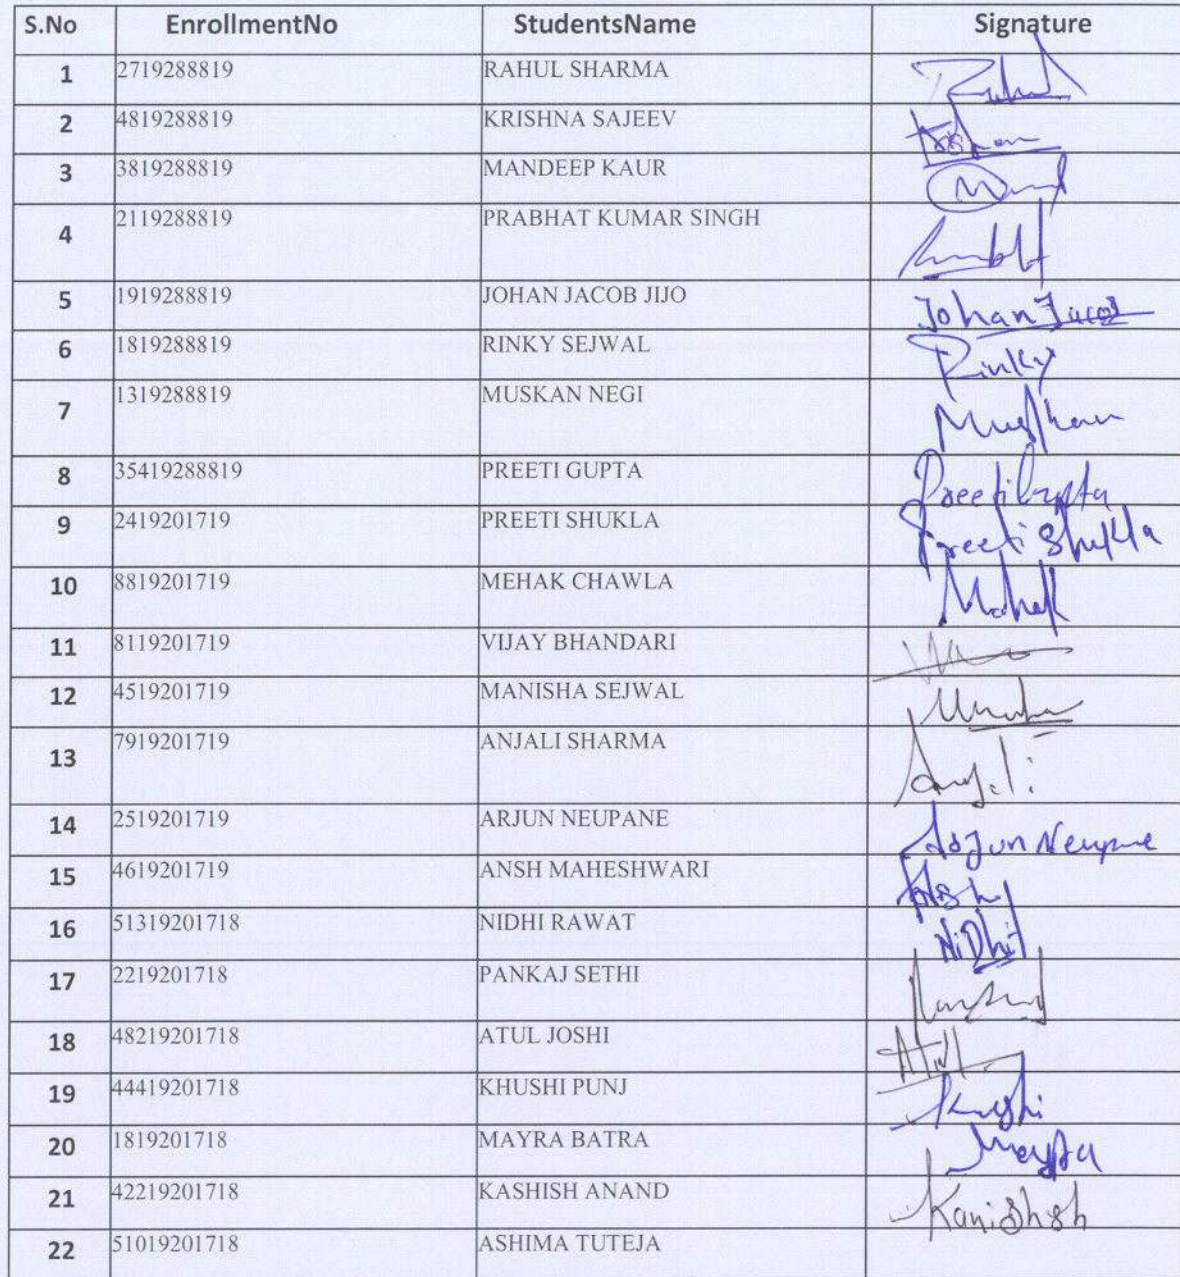 S.No EnrollmentNo StudentsName Signature
1 2719288819 RAHUL SHARMA
2 4819288819 KRISHNA SAJEEV
3 3819288819 MANDEEP KAUR
4 2119288819 PRABHAT KUMAR SINGH
5 1919288819 JOHAN JACOB JIJO Johan Jacob
6 1819288819 RINKY SEJWAL Rinky
7 1319288819 MUSKAN NEGI Muskan
8 35419288819 PREETI GUPTA Preeti Gupta
9 2419201719 PREETI SHUKLA Preeti Shukla
10 8819201719 MEHAK CHAWLA Mehak
11 8119201719 VIJAY BHANDARI
12 4519201719 MANISHA SEJWAL
13 7919201719 ANJALI SHARMA Anjali
14 2519201719 ARJUN NEUPANE Arjun Neupane
15 4619201719 ANSH MAHESHWARI
16 51319201718 NIDHI RAWAT NiDhi
17 2219201718 PANKAJ SETHI
18 48219201718 ATUL JOSHI Atul
19 44419201718 KHUSHI PUNJ
20 1819201718 MAYRA BATRA
21 42219201718 KASHISH ANAND
22 51019201718 ASHIMA TUTEJA